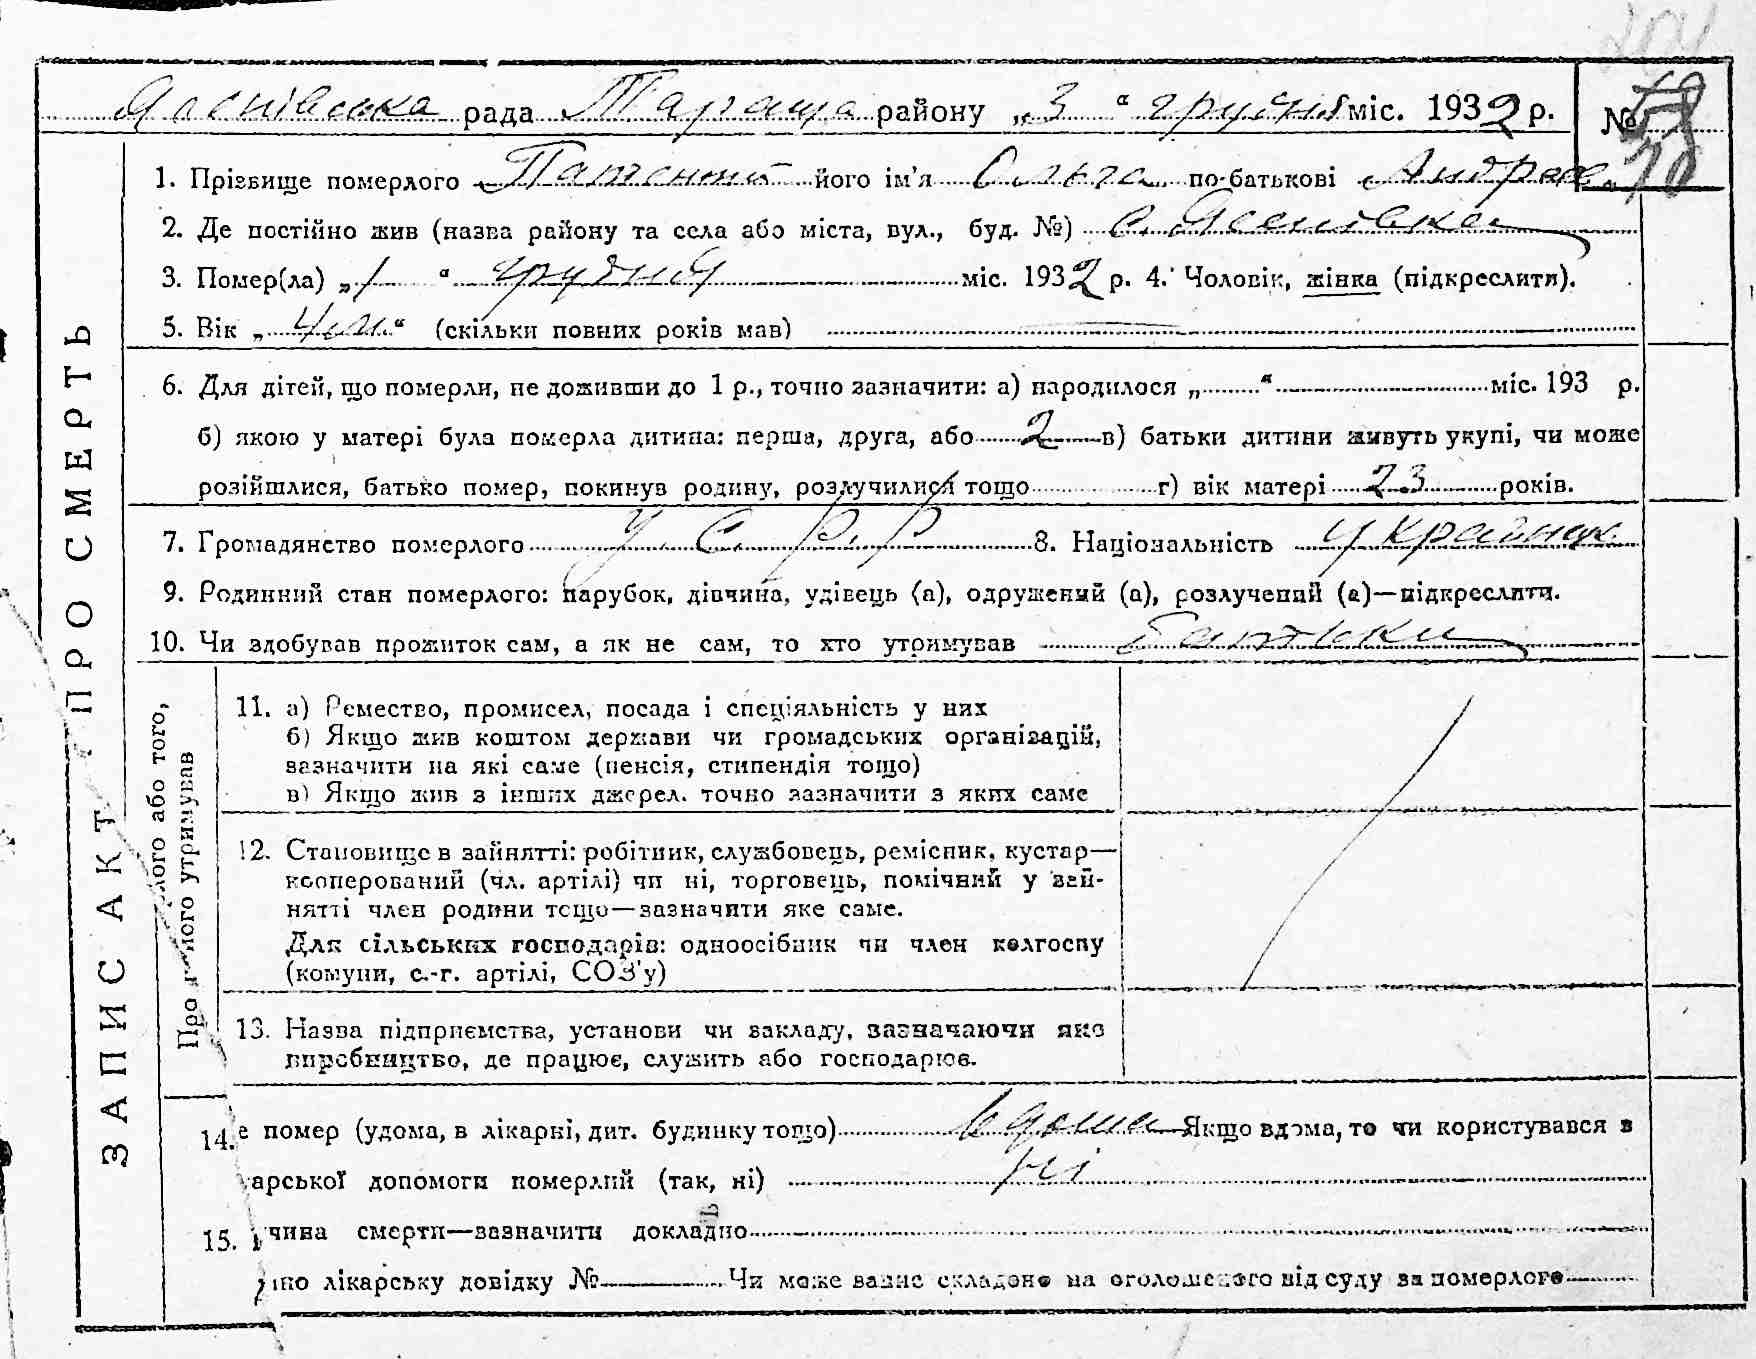 рада района „3“ грудня міс. 1932 р. №
1. Прізвище померлого його ім'я Ольга по-батькові Андрее
2. Де постійно жив (назва району та села або міста, вул., буд. №) с.
3. Помер(ла) „1“ грудня міс. 1932 р. 4. Чоловік, жінка (підкреслити).
5. Вік „4 м.“ (скільки повних років мав)
6. Для дітей, що померли, не доживши до 1 р., точно зазначити: а) народилося „ “ міс. 193 р.
б) якою у матері була померла дитина: перша, друга, або 2 в) батьки дитини живуть укупі, чи може
розійшлися, батько помер, покинув родину, розлучилися тощо г) вік матері 23 років.
7. Громадянство померлого У.С.Р.Р 8. Національність
9. Родинний стан померлого: парубок, дівчина, удівець (а), одружений (а), розлучений (а)—підкреслити.
10. Чи здобував прожиток сам, а як не сам, то хто утримував Батьки
11. а) Ремество, промисел, посада і спеціяльність у них
б) Якщо жив коштом держави чи громадських організацій,
зазначити на які саме (пенсія, стипендія тощо)
в) Якщо жив з інших джерел, точно зазначити з яких саме
12. Становище в зайнятті: робітник, службовець, ремісник, кустар—
кооперований (чл. артілі) чи ні, торговець, помічний у зай-
нятті член родини тощо—зазначити яке саме.
Для сільських господарів: одноосібник чи член колгоспу
(комуни, с.-г. артілі, СОЗ'у)
13. Назва підприємства, установи чи закладу, зазначаючи яко
виробництво, де працює, служить або господарює.
14. е помер (удома, в лікарні, дит. будинку тощо) вдома Якщо вдома, то чи користувався з
арської допомоги померлий (так, ні) ні
15. чина смерти—зазначити докладно
лікарську довідку № Чи може запис складено на оголошеного від суду за померлого
ЗАПИС АКТ ПРО СМЕРТЬ
Про лого або того,
мого утримував